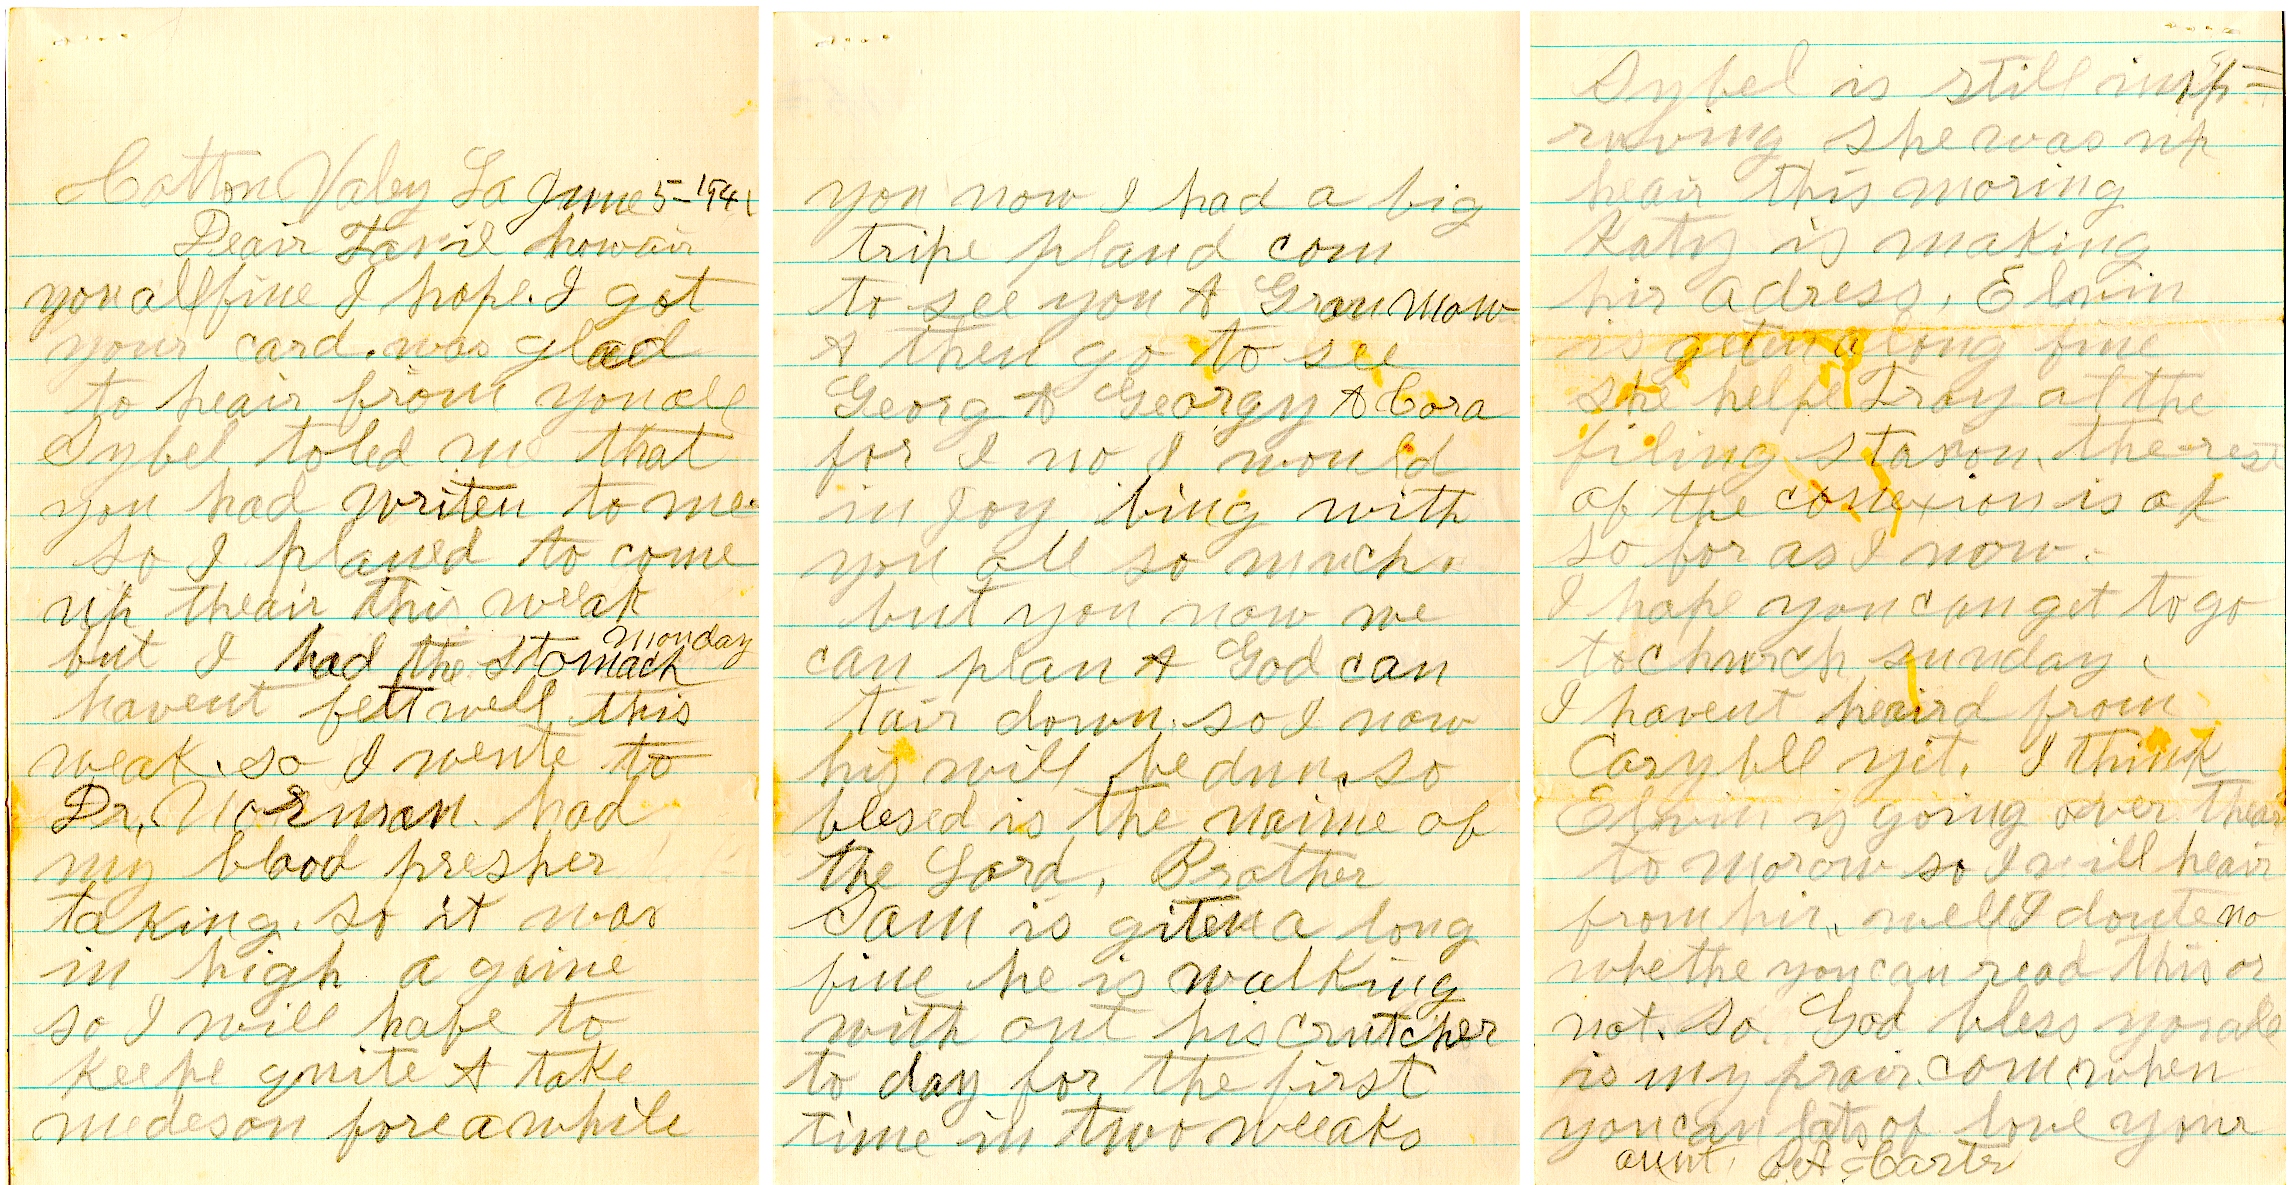 Cotton Valey La June 5-194
Deair Favil how air
you all fine I hope. I got
your card. was glad
to heair from you all
Sybel toled me that
you had writen to me.
so I planed to come
up theair this weak
Monday
but I had the stomach
havent felt well this
weak. so I wente to
Dr. Norman. had
my blood presher
taking. so it was
in high a gaine
so I will hafe to
keepe quite & take
medeson fore a while
you now I had a big
tripe pland com
to see you & Gran Maw
& then go to see
Georg & Georgy & Cora
for I no I would
in Joy bing with
you all so much.
but you now we
can plan & God can
tair down. so I now
his will be dun. so
blesed is the naime of
the Lord. Brother
Sam is giten a long
fine he is walking
with out his crutcher
to day for the first
time in two weeaks
Sybel is still imp=
roving she was up
heair this moring
Katy is making
hir adress. Elwin
is geten along fine
she helpe Troy at the
filing stason. the rest
of the conexion is ok
so for as I now.
I hope you can get to go
to church sunday.
I havent heaird from
Carybell yit. I think
Elwin is going over theair
to morow so I will heair
from hir. well I donte no
whethe you can read this or
not. So. God bless you all
is my prair. com when
you can lots of love your
aunt. B.A Carter